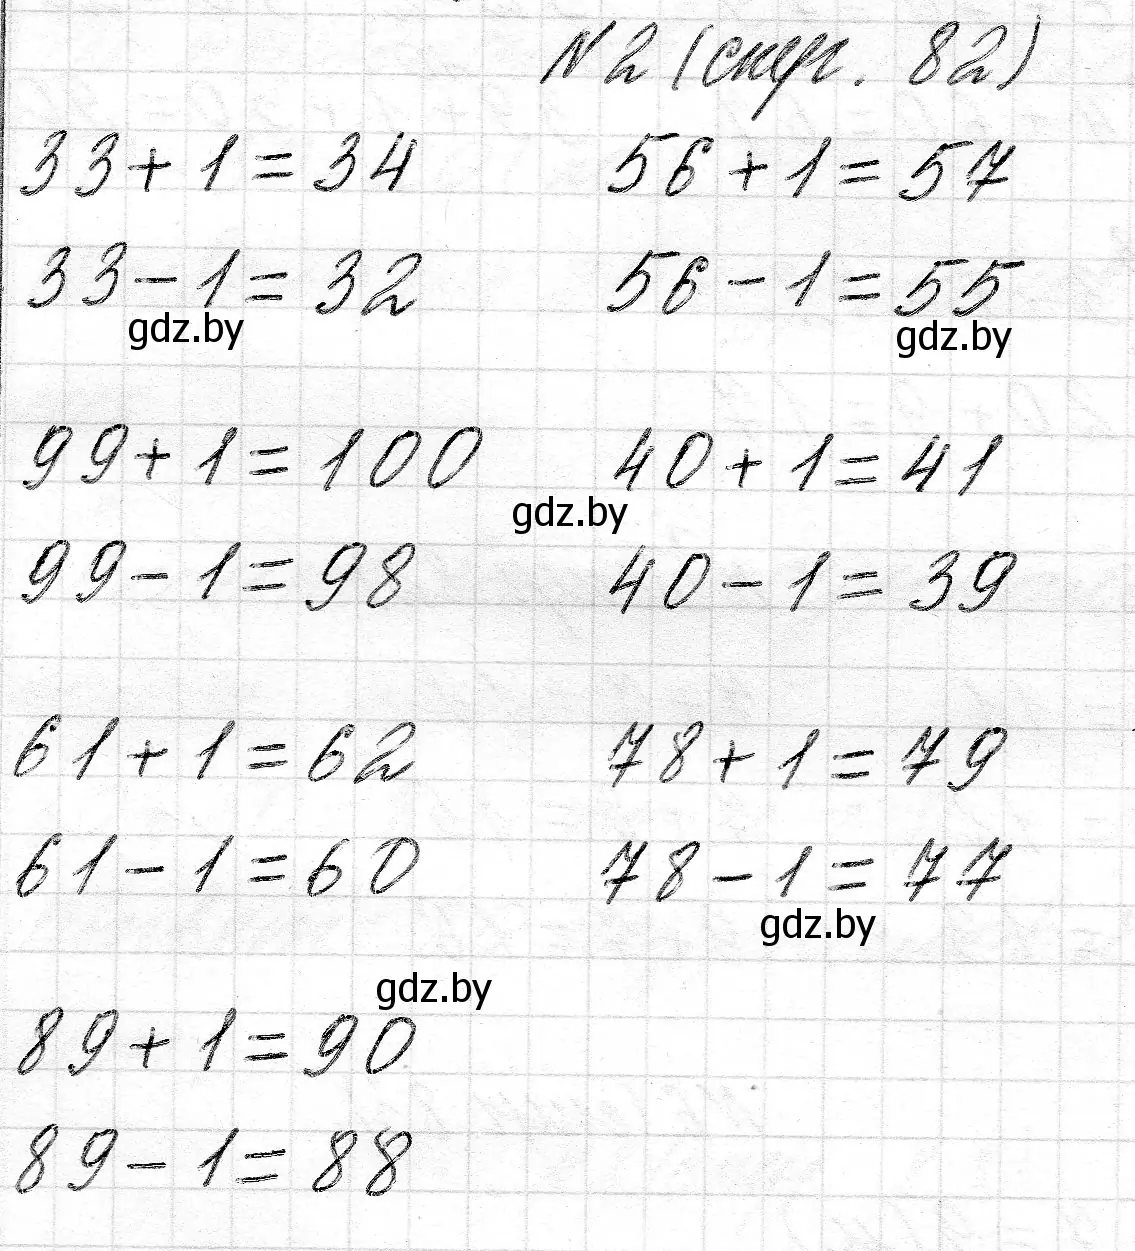 N2 (стр. 82)
33+1=34 56+1=57
33-1=32 56-1=55
gdz.by gdz.by
99+1=100 40+1=41
gdz.by
99-1=98 40-1=39
61+1=62 78+1=79
61-1=60 78-1=77
gdz.by
gdz.by
89+1=90
89-1=88